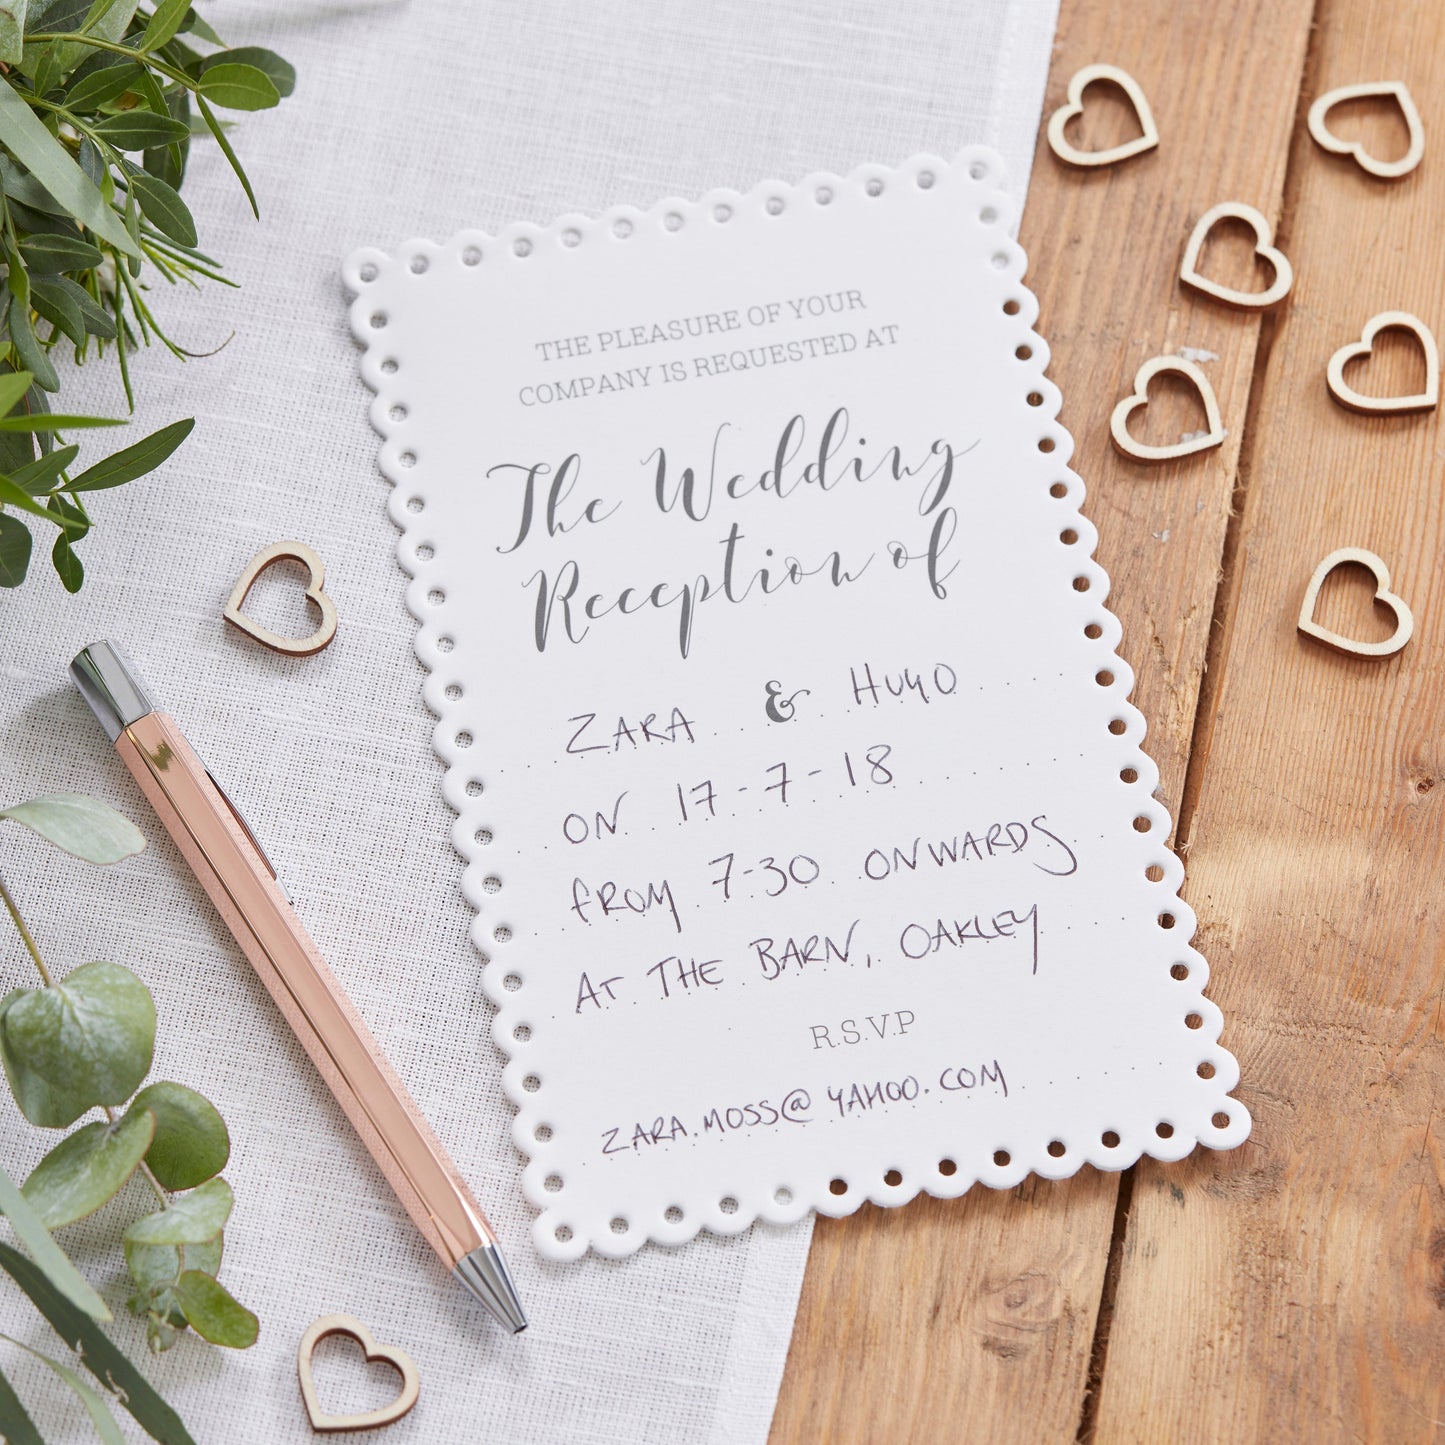 THE PLEASURE OF YOUR
COMPANY IS REQUESTED AT
The Wedding
Reception of
ZARA & HUGO
ON 17-7-18
FROM 7-30 ONWARDS
AT THE BARN, OAKLEY
R.S.V.P
ZARA.MOSS@YAHOO.COM